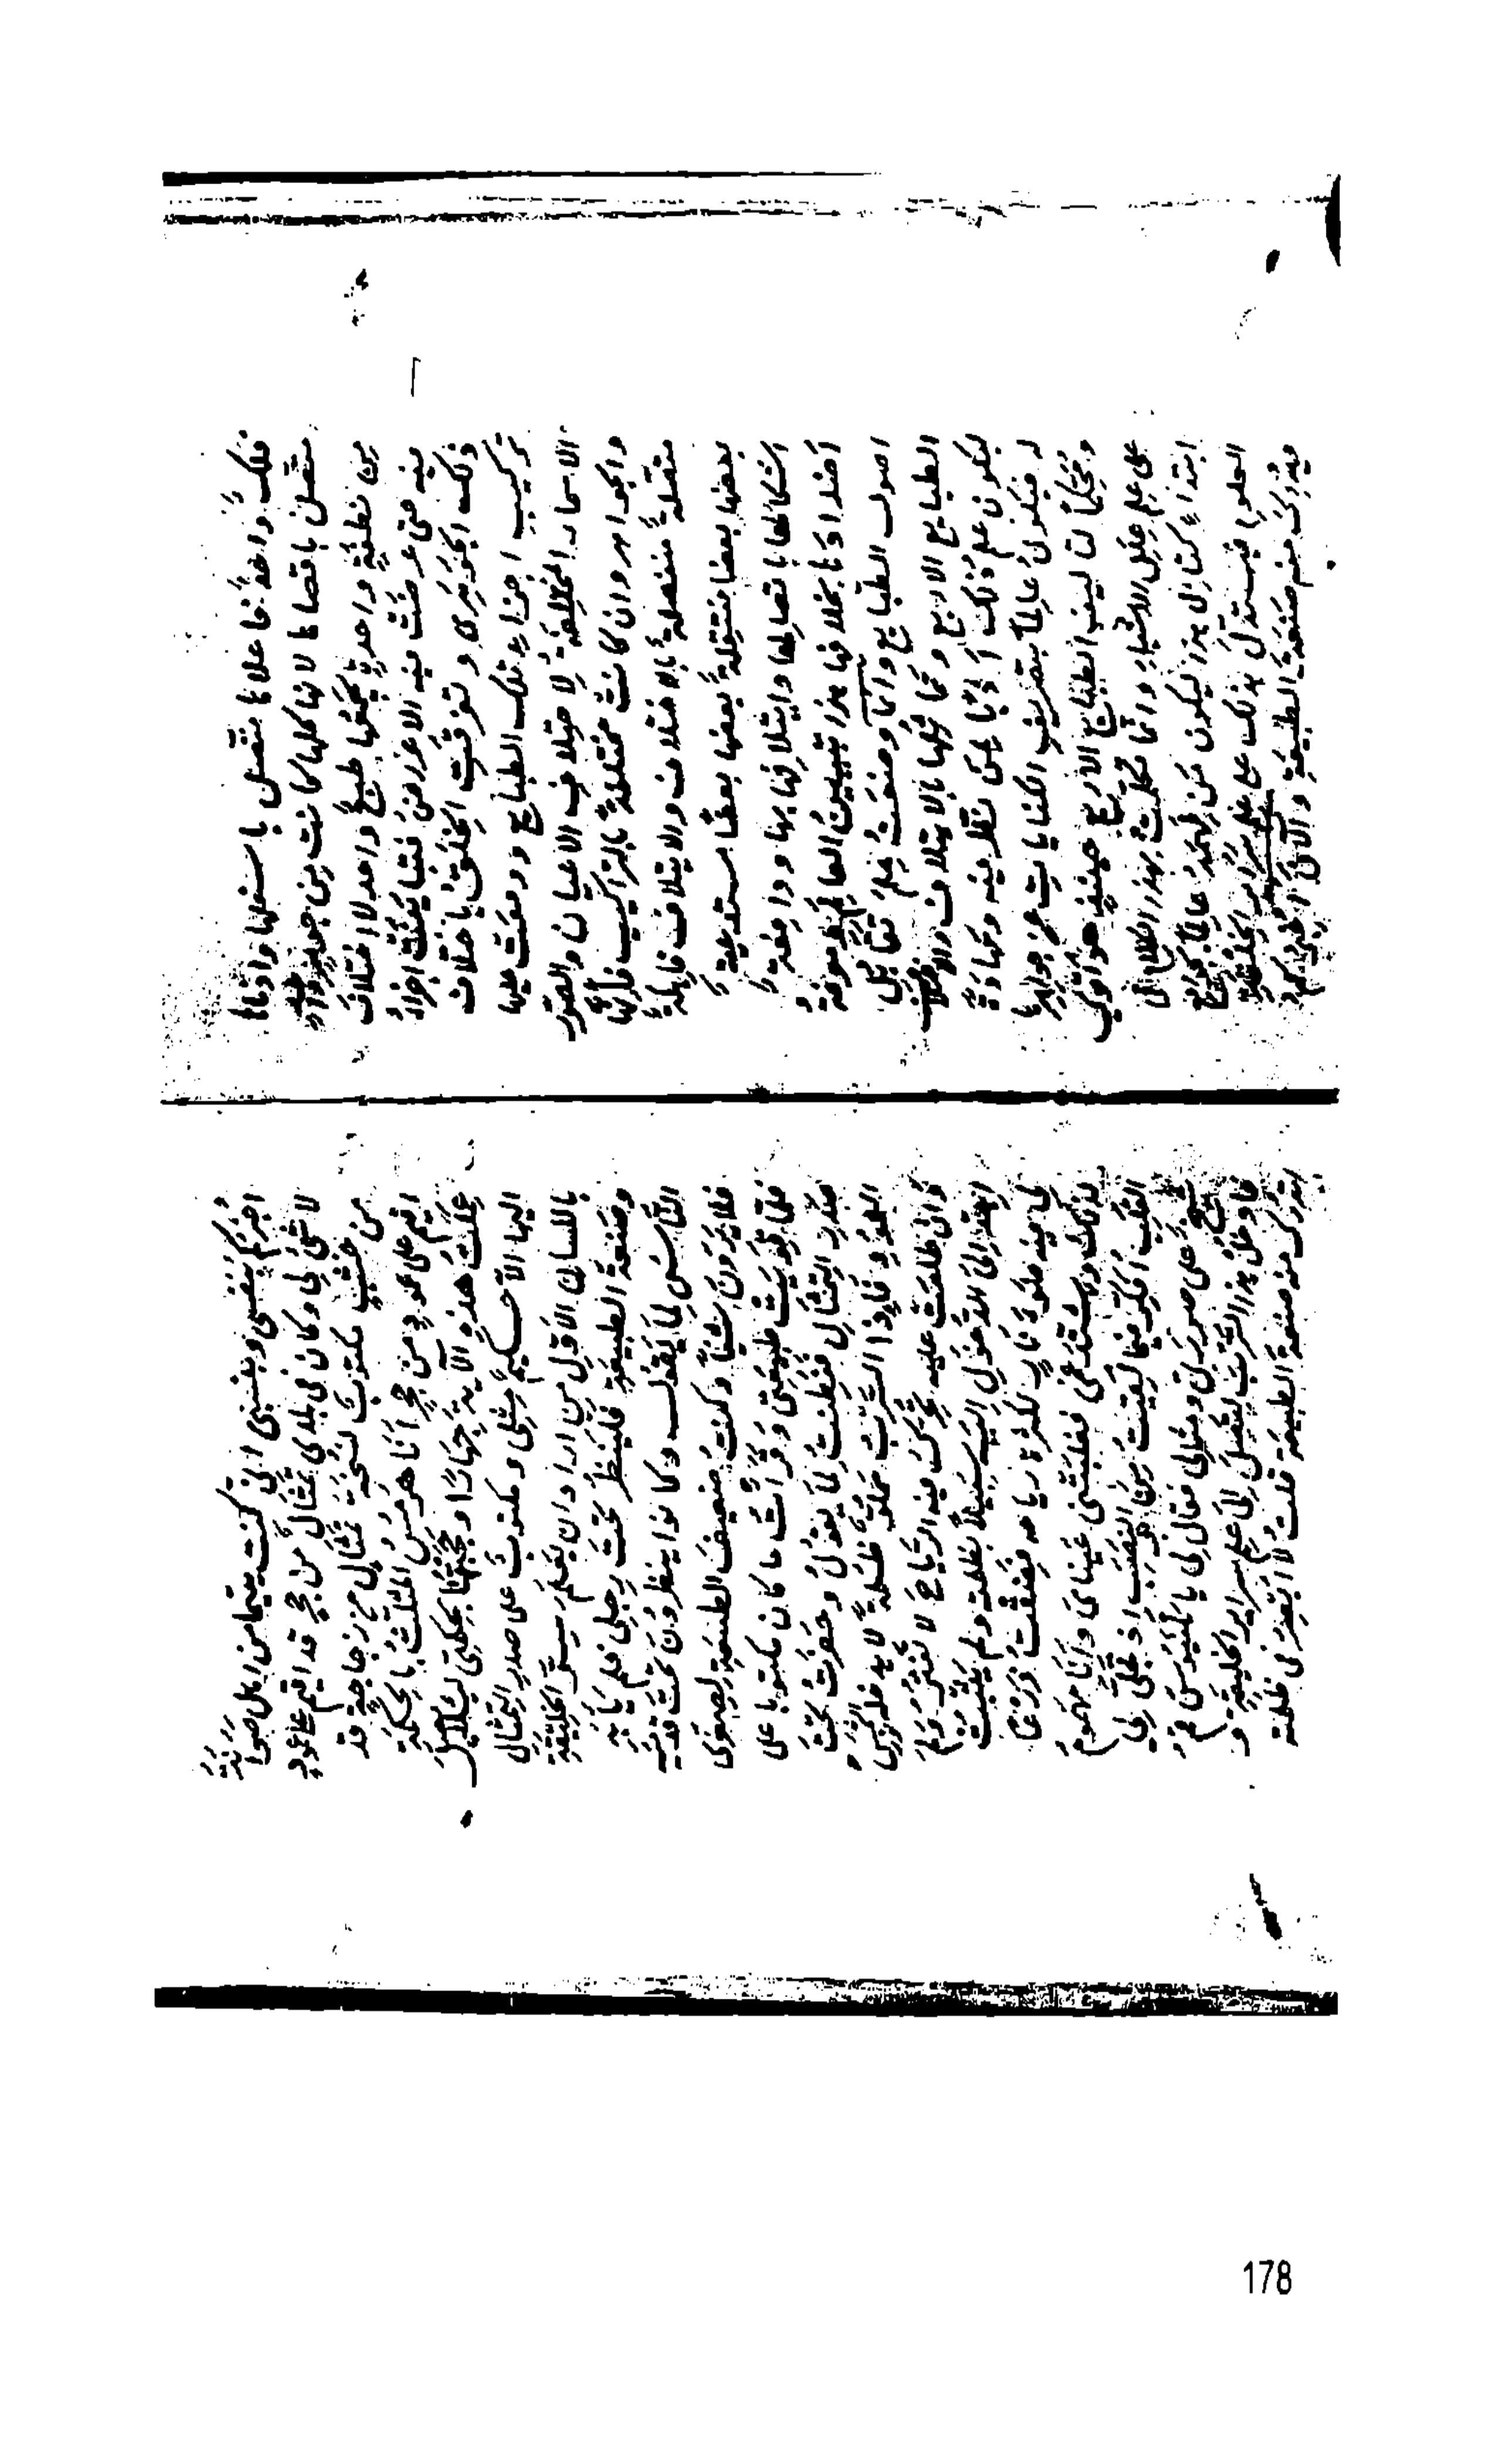 فلكٌ واحدٌ فاعلاها متصل باسفلها وادناها
متصل باقصاها لانها كلها كانت من جوهر واحد
من نطفةٍ واحدةٍ يجمعها طبعٌ واحد لا اختلاف
فيه حتى عرضت فيه الاعراض فتباينت اجزاء
ذلك الجوهر وتفرقت الخلق باختلاف
تركيب اجزاء تلك الطبائع ووقعت عليها
الاسماء المختلفة لاختلاف الاعيان والصور
والجواهر وان كانت مختلفة بالتراكيب فانها
متصلةٌ منفصلةٌ بالاختلاف والايتلاف قابلة
بعضها بعضا بعضها بعضًا مستدعية
اشكالها باتصالها وايتلافها بها ودافعة
اضدادها بخلافها هذا تبيين العالم ومعرفة
اصول الطبايع وانما وضعت علم تقابل
الطبايع الاربع وتماثلها بالايتلاف
ليكون علم ذلك ادبًا لمن نظر فيه ومهارة
له فيكون عالمًا بتصريف الكنايات عن جواهرها
ومحكمًا لتاليف الطبايع الاربع حينئذ هو اقوى
على علم علل الاشياء وانما تكلمت بهذا الكلام في
ابتداء كتابي هذا ليكون من فهمه عالمًا
العلوم فيستدل بذلك على علم سراير الخليقة
فيدرك منه صنعة الطبيعة والآن اخبركم
اخبركم بنفسي وبنسبي اني كنت يتيما من اهل
لا شيء لي وكان في بلدي تمثال من حجر قد اقيم على عمود
من خشب مكتوب تمثال من زجاجة قد
اقيم على عمود من حجر انا هرمس المثلث بالحكمة
عملت هذه الآية جهارًا وحجبتها بحكمتي ليلا يصل
اليها الا حكيم مثلي ومكتوب على صدر التمثال
باللسان الاول من اراد ان يعلم سر الخليقة
وصنعة الطبيعة فلينظر تحت رجلي فلم يابه
الناس لما يقول وكانوا ينظرون تحت قدميه
فلا يرون شيئًا وكنت ضعيف الطبيعة لصغري
فلما قويت طبيعتي وقرأت ما كان مكتوبا على
صدر التمثال ففطنت لما يقول وحفرت تحت
العمود فاذا السرب مملو ظلمة لا يدخله
وان طلعت عليه تحرك فيه الرياح لا تفتر فلم
اجد الى الدخول اليه سبيلًا لظلمته ولم يثبت
لي فيه ضوء نار لكثرة رياحه فضقت ذرعا
لذلك واشتد غمي فغلبتني عيناي وانا مهموم
القلب افكر فيما لقيت من التعب اذ تجلى لي
شيخ على صورتي ومثالي فقال لي يا بلنيوس قم
فادخل هذا السرب لتصل الى علم سراير الخليقة و
تدرك منه صنعة الطبيعة قلت لا ابصر في ظلمته
178